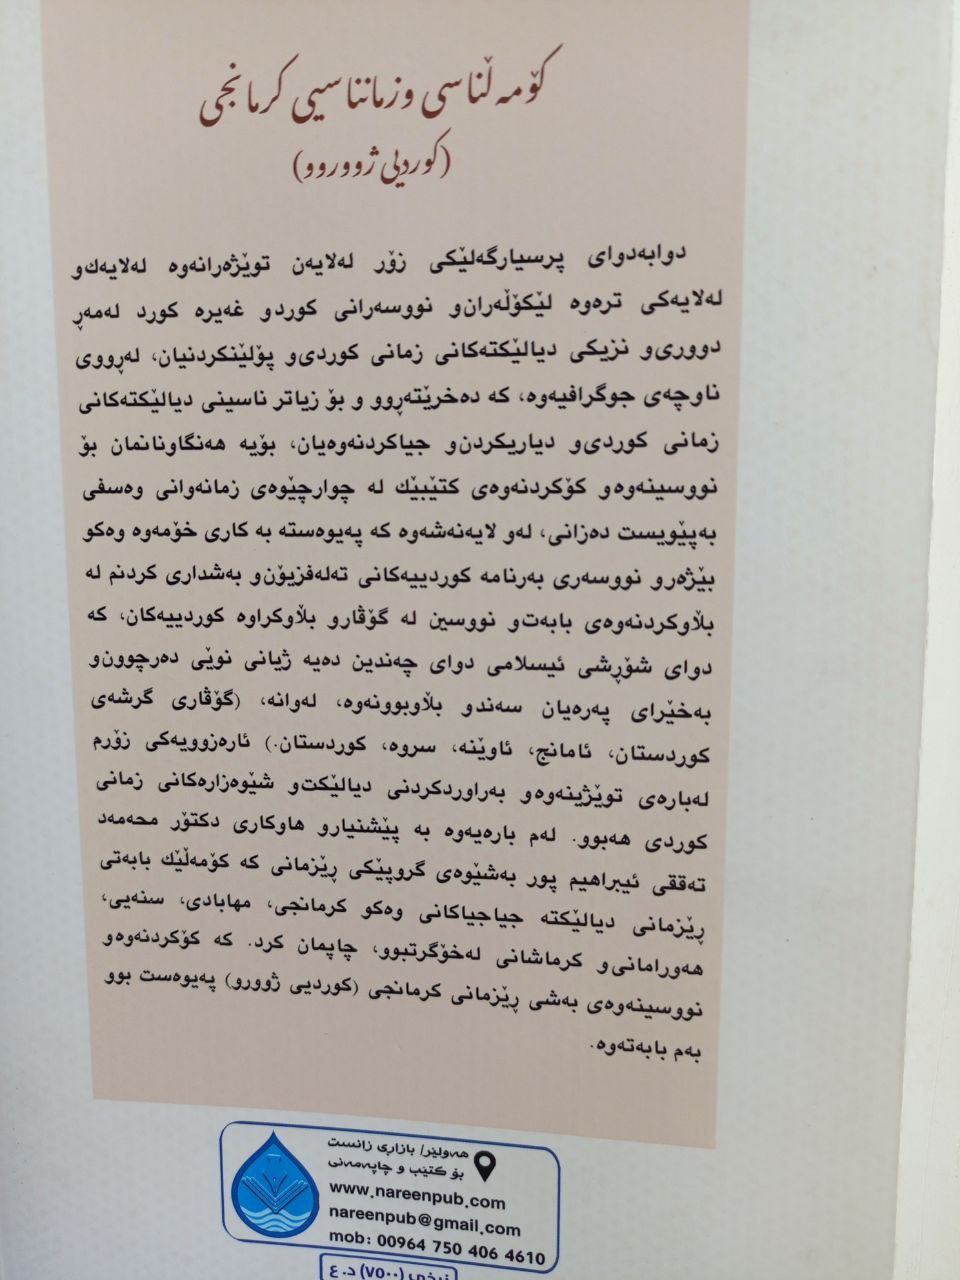 كۆمەڵناسی وزمانناسیی كرمانجی
(كوردیی ژووروو)
دوابەدوای پرسیارگەلێكی زۆر لەلایەن توێژەرانەوە لەلایەك‌و
لەلایەكی ترەوە لێكۆڵەران‌و نووسەرانی كوردو غەیرە كورد لەمەڕ
دووری‌و نزیكی دیالێكتەكانی زمانی كوردی‌و پۆلێنكردنیان، لەڕووی
ناوچەی جوگرافیەوە، كە دەخرێتەڕوو و بۆ زیاتر ناسینی دیالێكتەكانی
زمانی كوردی‌و دیاریكردن‌و جیاكردنەوەیان، بۆیە هەنگاونانمان بۆ
نووسینەوە‌و كۆكردنەوەی كتێبێك لە چوارچێوەی زمانەوانی وەسفی
بەپێویست دەزانی، لەو لایەنەشەوە كە پەیوەستە بە كاری خۆمەوە وەكو
بێژەرو نووسەری بەرنامە كوردییەكانی تەلەفزیۆن‌و بەشداری كردنم لە
بڵاوكردنەوەی بابەت‌و نووسین لە گۆڤارو بڵاوكراوە كوردییەكان، كە
دوای شۆڕشی ئیسلامی دوای چەندین دەیە ژیانی نوێی دەرچوون‌و
بەخێرای پەرەیان سەندو بڵاوبوونەوە، لەوانە، (گۆڤاری گرشەی
كوردستان، ئامانج، ئاوێنە، سروە، كوردستان.) ئارەزوویەكی زۆرم
لەبارەی توێژینەوە‌و بەراوردكردنی دیالێكت‌و شێوەزارەكانی زمانی
كوردی هەبوو. لەم بارەیەوە بە پێشنیارو هاوكاری دكتۆر محەمەد
تەققی ئیبراهیم پور بەشێوەی گروپێكی ڕێزمانی كە كۆمەڵێك بابەتی
ڕێزمانی دیالێكتە جیاجیاكانی وەكو كرمانجی، مهابادی، سنەیی،
هەورامانی‌و كرماشانی لەخۆگرتبوو، چاپمان كرد. كە كۆكردنەوە‌و
نووسینەوەی بەشی ڕێزمانی كرمانجی (كوردیی ژوورو) پەیوەست بوو
بەم بابەتەوە.
هەولێر/ بازاری زانست
بۆ كتێب و چاپەمەنی
www.nareenpub.com
nareenpub@gmail.com
mob: 00964 750 406 4610
نرخی (٧٥٠٠) د.ع